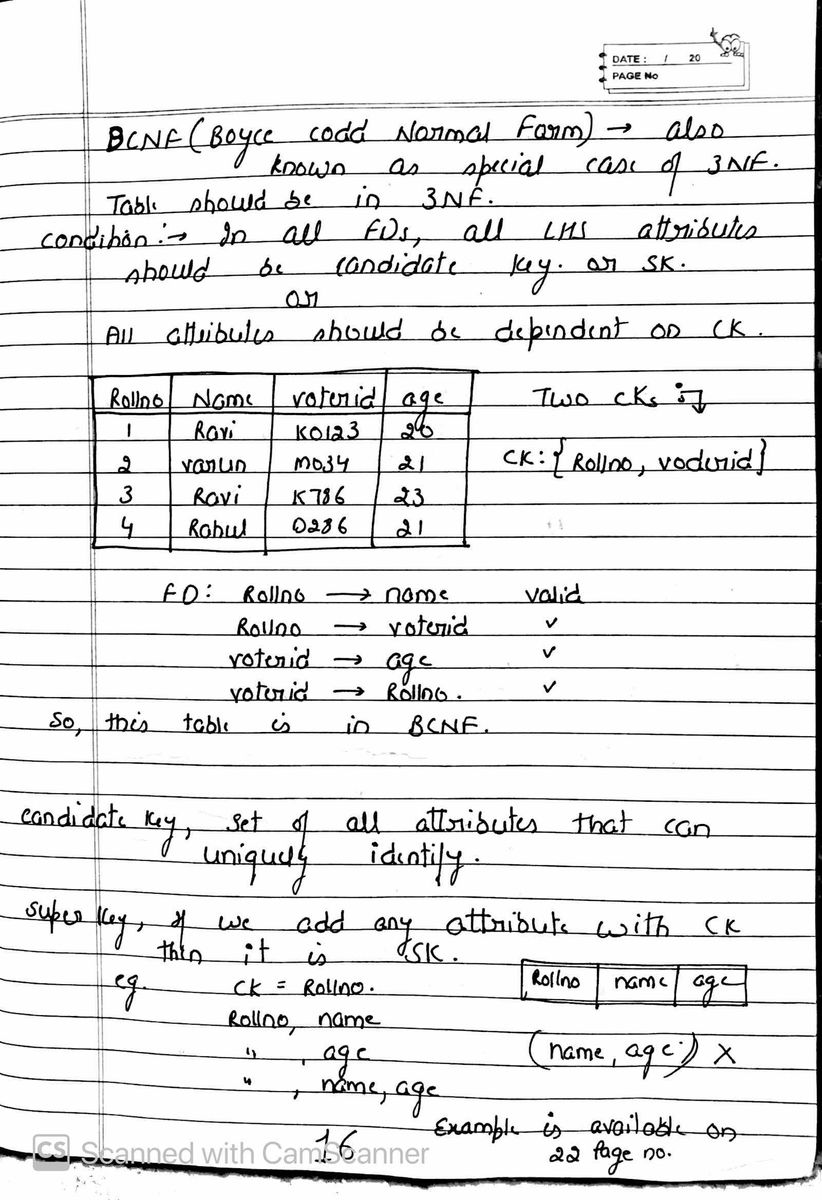 DATE: / 20
PAGE No
BCNF (Boyce codd Normal Form) → also
known as special case of 3NF.
Table should be in 3NF.
condition :→ In all FDs, all LHS attributes
should be candidate key. or SK.
or
All attributes should be dependent on CK.
Rollno Name voterid age
1 Ravi K0123 20
2 varun M034 21
3 Ravi K786 23
4 Rahul D286 21
Two CKs :↓
CK: { Rollno, voderid }
FD: Rollno → name valid
Rollno → voterid ✓
voterid → age ✓
voterid → Rollno. ✓
So, this table is in BCNF.
candidate key, set of all attributes that can
uniquely identify.
super key, If we add any attribute with CK
then it is SK.
eg. CK = Rollno.
Rollno name age
Rollno, name
" , age
(name, age) X
" , name, age
Example is available on
22 Page no.
16
CS Scanned with CamScanner